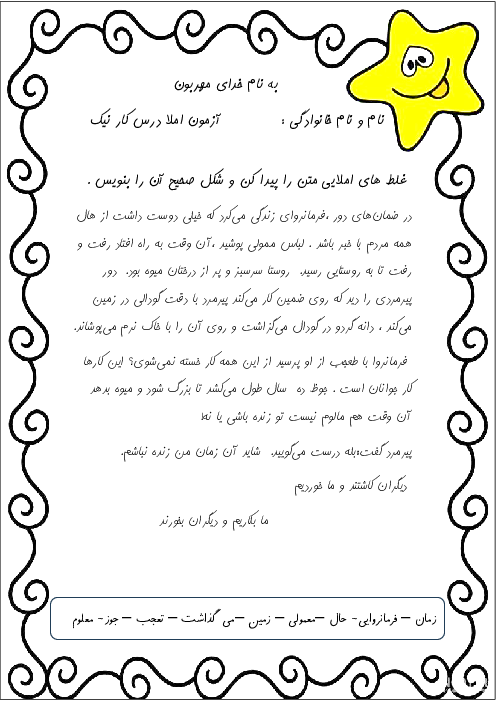 به نام خدای مهربون
نام و نام خانوادگی : آزمون املا درس کار نیک
غلط های املایی متن را پیدا کن و شکل صحیح آن را بنویس .
در ضمان‌های دور ،فرمانروای زندگی می‌کرد که خیلی دوست داشت از هال
همه مردم با خبر باشد . لباس ممولی پوشید ،آن وقت به راه افتاد رفت و
رفت تا به روستایی رسید. روستا سرسبز و پر از درختان میوه بود. دور
پیرمردی را دید که روی ضمین کار می‌کند پیرمرد با دقت گودالی در زمین
می‌کند ، دانه گردو در گودال می‌گزاشت و روی آن را با خاک نرم می‌پوشاند.
فرمانروا با طعجب از او پرسید از این همه کار خسته نمی‌شوی؟ این کارها
کار جوانان است . جوظ ده سال طول می‌کشد تا بزرگ شود و میوه بدهد
آن وقت هم مالوم نیست تو زنده باشی یا نه!
پیرمرد گفت؛بله درست می‌گویید. شاید آن زمان من زنده نباشم.
دیگران کاشتند و ما خوردیم
ما بکاریم و دیگران بخورند
زمان – فرمانروایی- حال –معمولی – زمین –می گذاشت – تعجب –جوز- معلوم